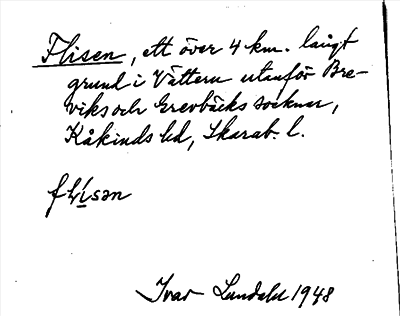 Flisen, ett över 4 km. långt
grund i Vättern utanför Bre-
viks och Grevbäcks socknar,
Kåkinds hd, Skarab. l.
Ivar Lundahl 1948